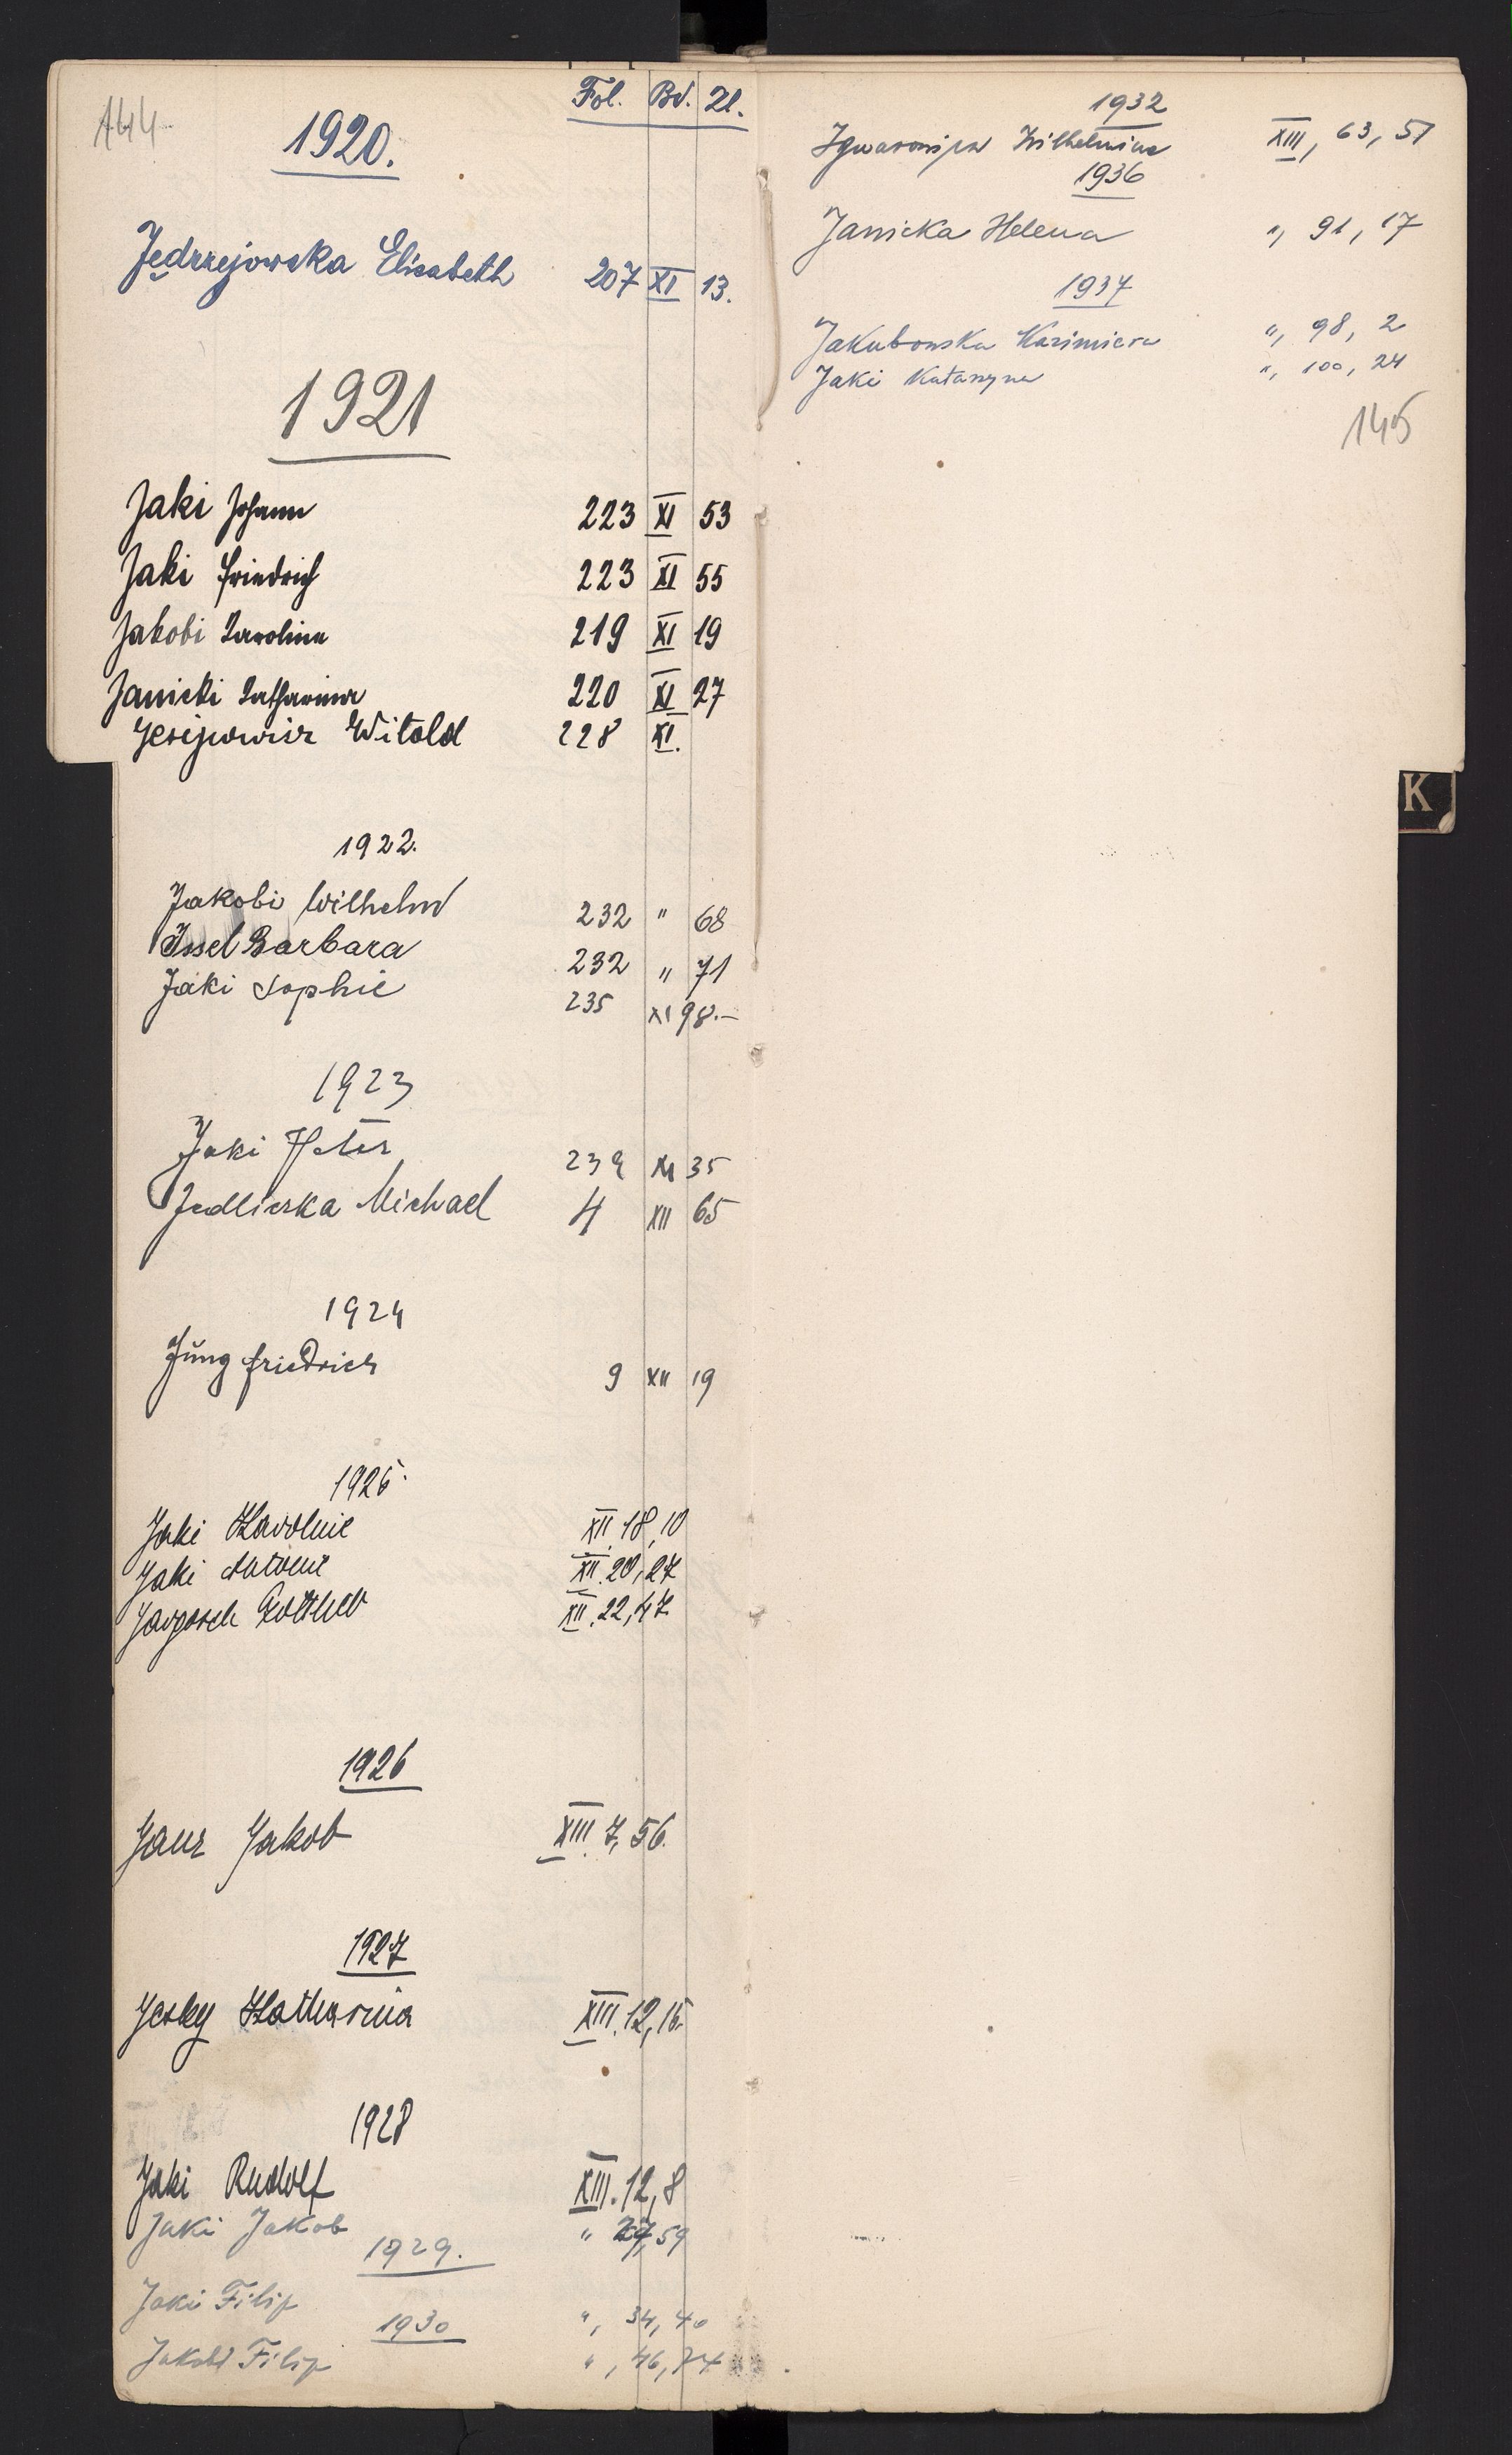 144
Fol. Bd. Zl.
1920.
Jędrzejowska Elisabeth 207 XI 13.
1921
Jaki Johann 223 XI 53
Jaki Friedrich 223 XI 55
Jakobi Karolina 219 XI 19
Janicki Katharina 220 XI 27
Witold 228 XI.
1922.
Jakobi Wilhelm 232 " 68
Issel Barbara 232 " 71
Jaki Sophie 235 XI 98.-
1923
Jaki Peter 239 XI 35
Jedliczka Michael 4 XII 65
1924
Jung Friedrich 9 XII 19
1925.
Jaki Karoline XII, 18, 10
Jaki XII. 20, 27
Gottlieb XII. 22, 47
1926
Janz Jakob XIII. 7, 56.
1927
Jesky Katharina XIII. 12, 15.
1928
Jaki Rudolf XIII. 12, 8
Jaki Jakob " 27, 59
1929.
Jaki Filip ", 34, 40
1930
Jakobi Filip ", 46, 74
1932
Wilhelmine XIII, 63, 51
1936
Janicka Helena ", 91, 17
1937
Jakubowska Kazimiera ", 98, 2
Jaki Katarzyna ", 100, 24
145
K